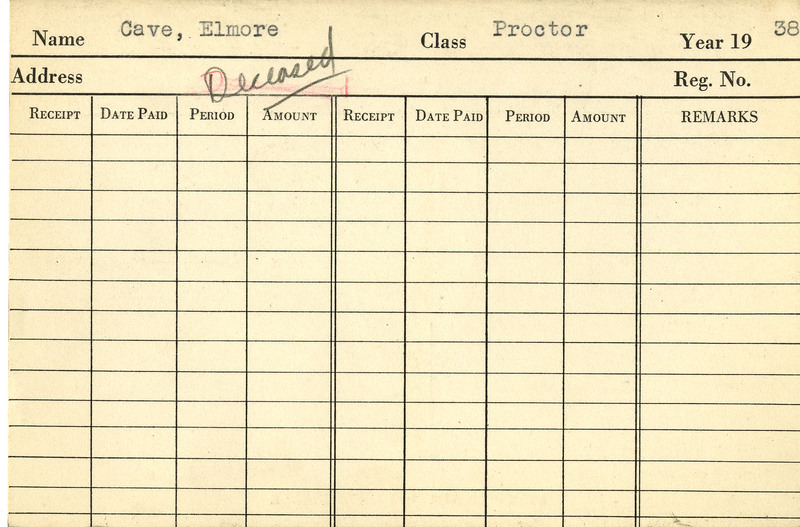 Name Cave, Elmore Class Proctor Year 19 38
Address Deceased Reg. No.
RECEIPT DATE PAID PERIOD AMOUNT RECEIPT DATE PAID PERIOD AMOUNT REMARKS